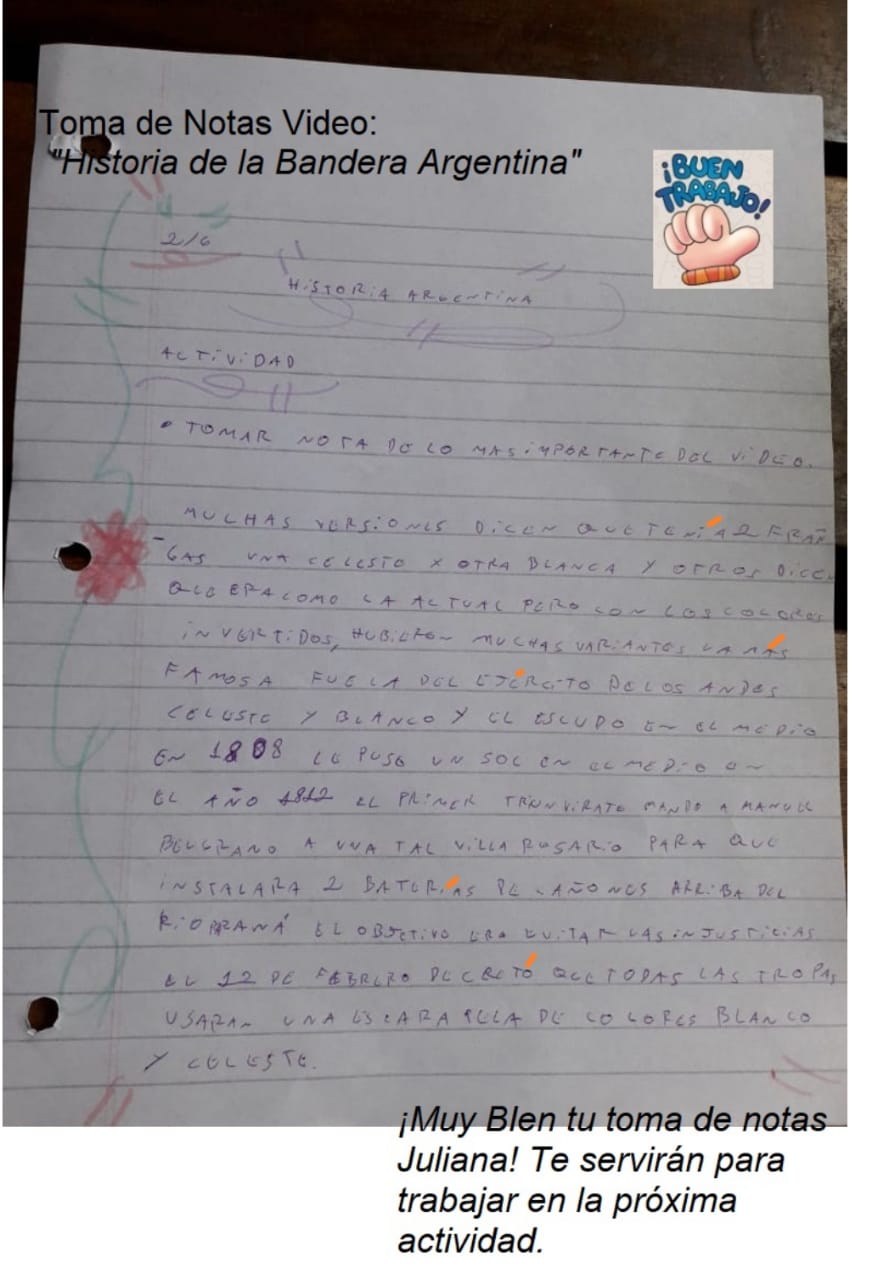 Toma de Notas Video:
"Historia de la Bandera Argentina"
¡BUEN
TRABAJO!
2/6
HISTORIA ARGENTINA
ACTIVIDAD
• TOMAR NOTA DE LO MAS IMPORTANTE DEL VIDEO.
MUCHAS VERSIONES DICEN QUE TENÍA 2 FRAN
-GAS UNA CELESTE Y OTRA BLANCA Y OTROS DICEN
QUE ERA COMO LA ACTUAL PERO CON LOS COLORES
INVERTIDOS, HUBIERON MUCHAS VARIANTES LA MÁS
FAMOSA FUE LA DEL EJÉRCITO DE LOS ANDES
CELESTE Y BLANCO Y EL ESCUDO EN EL MEDIO
EN 1808 LE PUSO UN SOL EN EL MEDIO EN
EL AÑO 1812 EL PRIMER TRIUNVIRATO MANDO A MANUEL
BELGRANO A UNA TAL VILLA ROSARIO PARA QUE
INSTALARA 2 BATERÍAS DE CAÑONES ARRIBA DEL
RIO PRANÁ EL OBJETIVO ERA EVITAR LAS INJUSTICIAS
EL 12 DE FEBRERO DECRETÓ QUE TODAS LAS TROPAS
USARAN UNA ESCARAPELA DE COLORES BLANCO
Y CELESTE.
¡Muy BIen tu toma de notas
Juliana! Te servirán para
trabajar en la próxima
actividad.